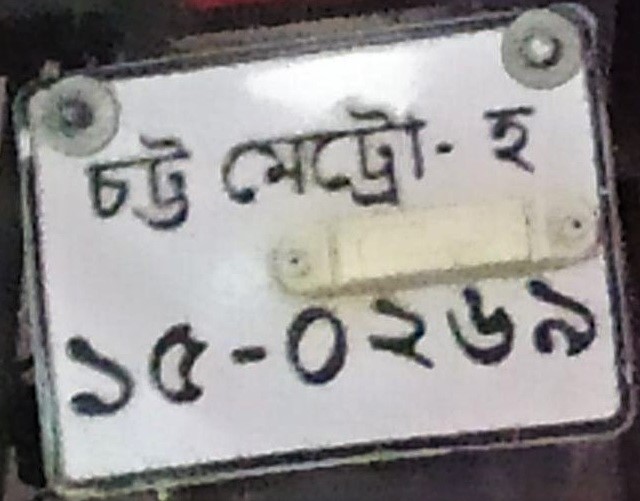 চট্ট মেট্রো- হ
১৫-০২৬৯